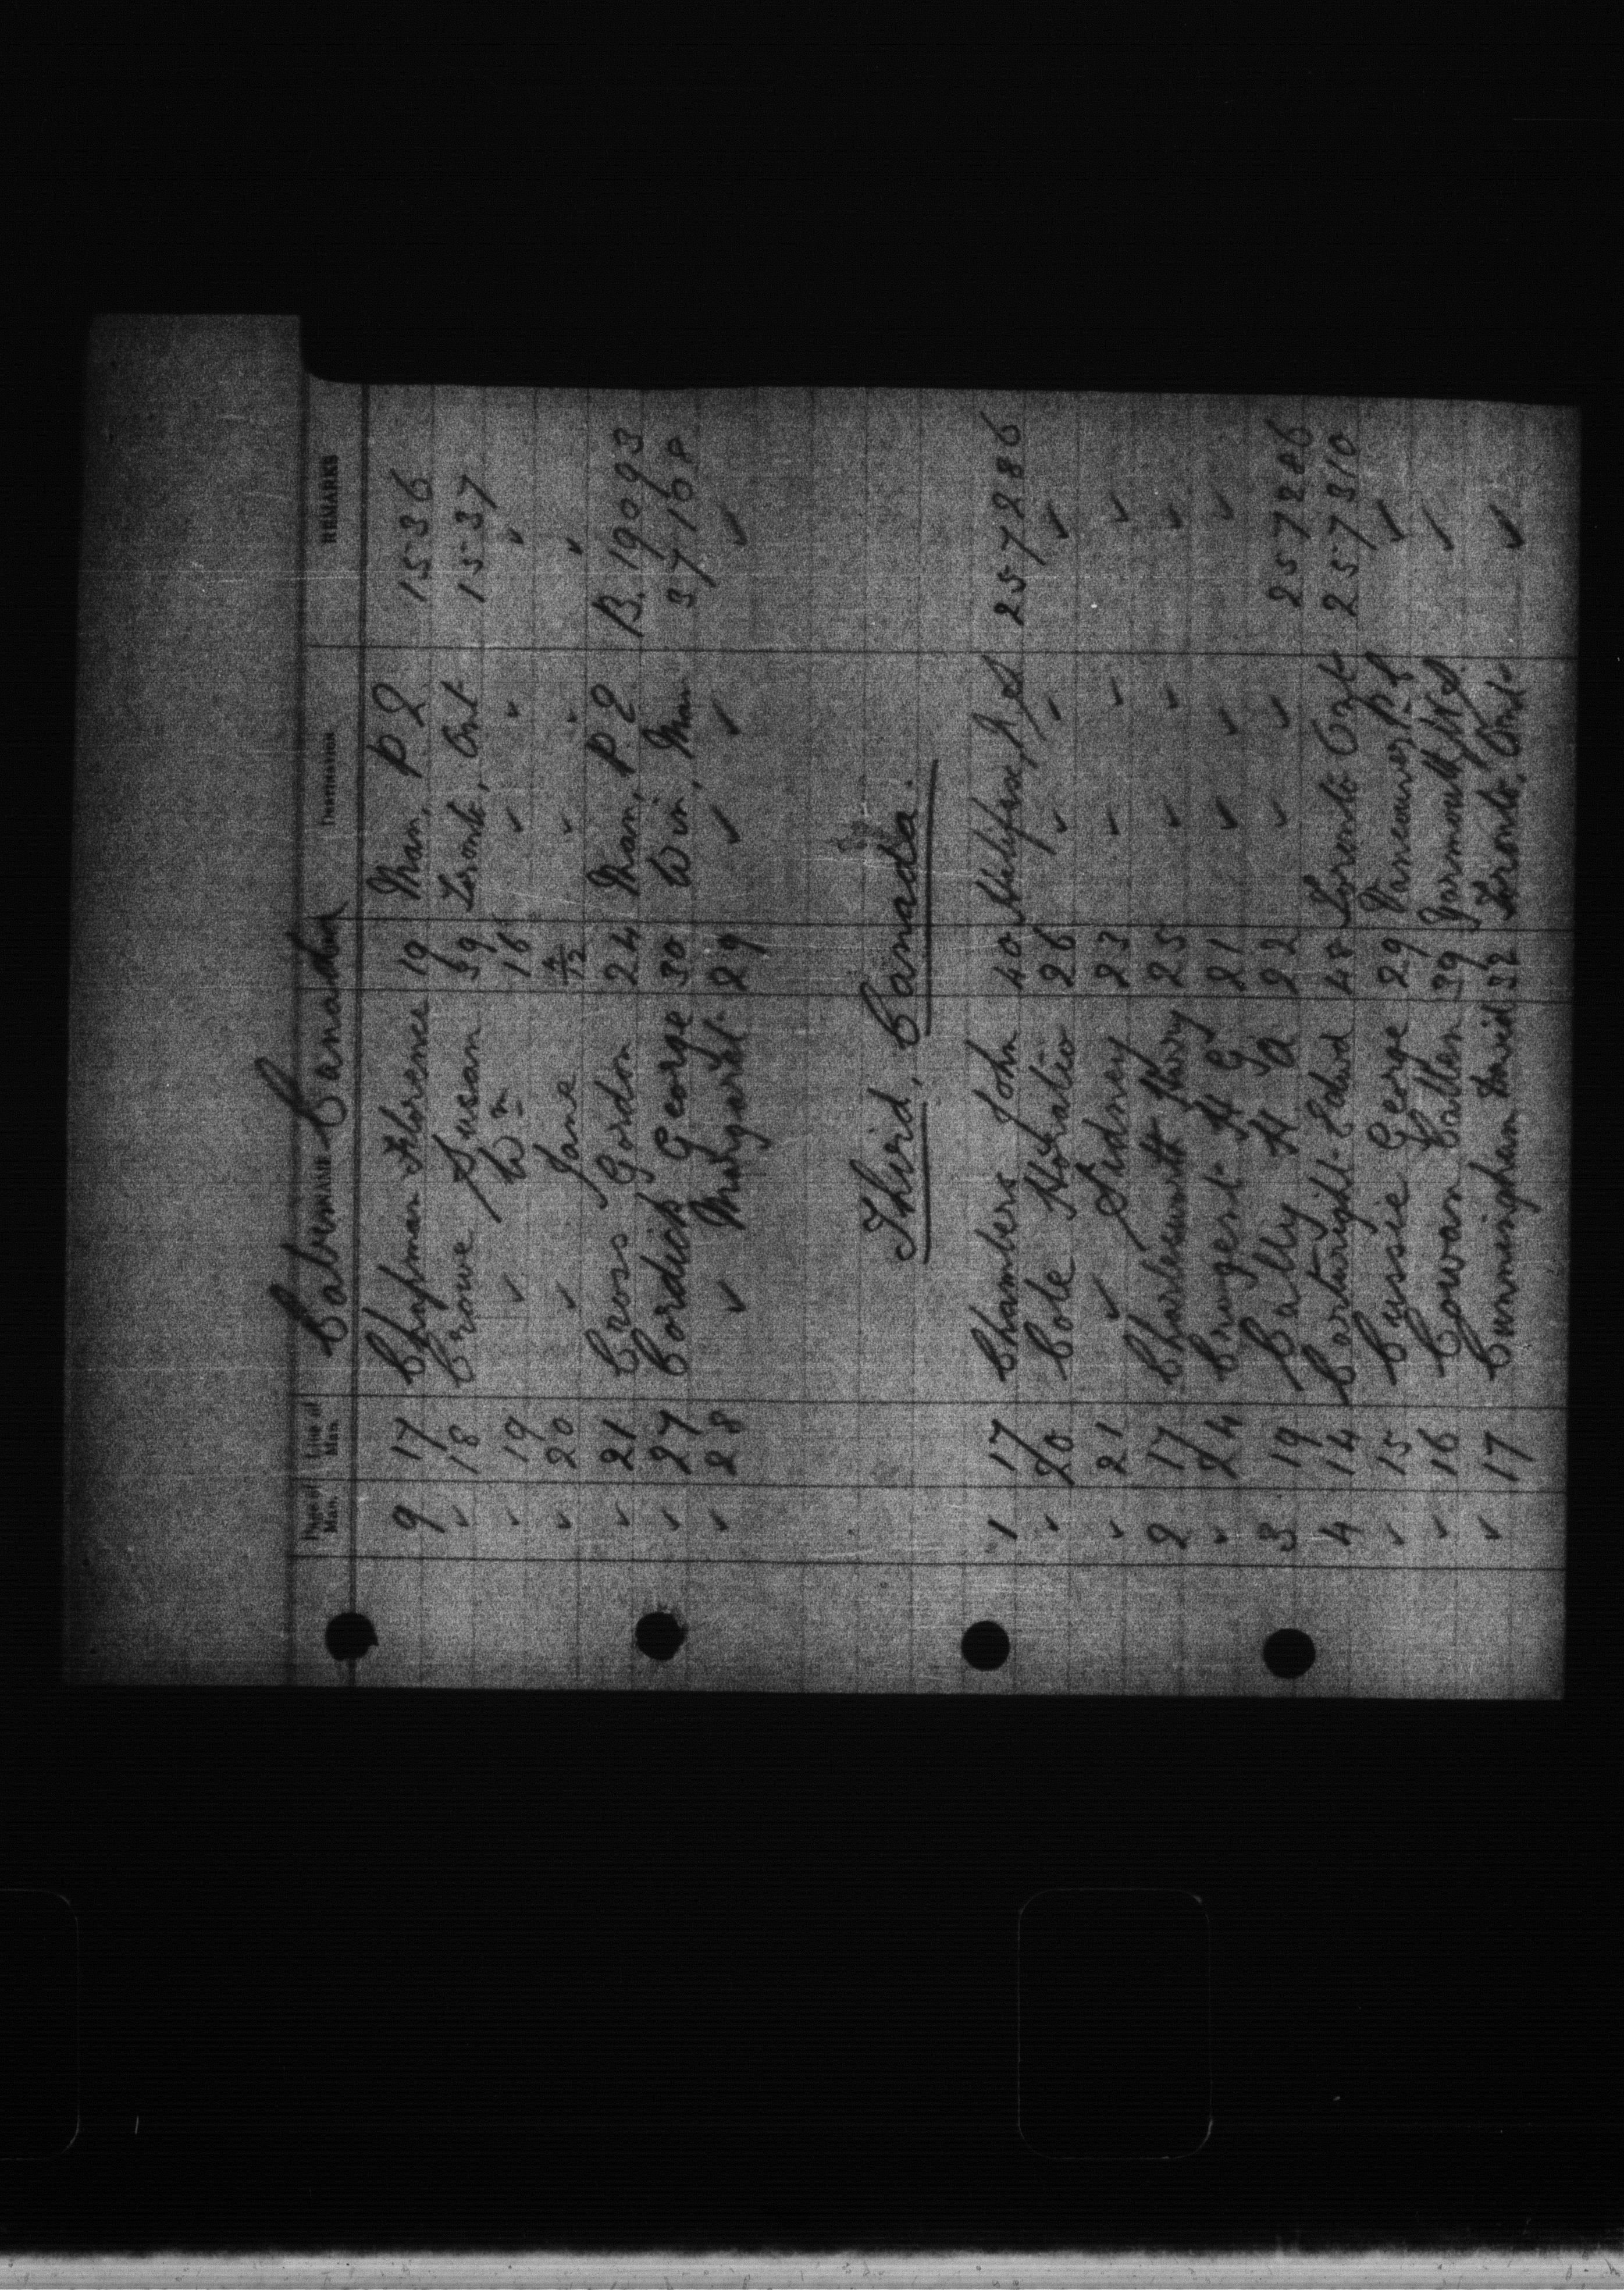 Cabin Canada
Page of Man. Line of Man. NAME DESTINATION REMARKS
9 17 Chapman Florence 19 Man, P Q 1536
✓ 18 Crowe Susan 39 Toronto, Ont 1537
✓ 19 ✓ Wm 16 ✓ ✓ ✓
✓ 20 ✓ Jane ✓ ✓ ✓
✓ 21 Cross Gordon 24 Man, P.Q B.19093
✓ 27 Cordick George 30 Win, Man 37168
✓ 28 ✓ Margaret 29 ✓ ✓ ✓
Third, Canada.
1 17 Chambers John 40 Halifax, N S 257286
✓ 20 Cole Horatio 26 ✓ ✓ ✓
✓ 21 ✓ Sidney 23 ✓ ✓ ✓
2 17 Charlesworth Harry 25 ✓ ✓ ✓
✓ 24 Crugent H G 21 ✓ ✓ ✓
3 19 Cally H A 22 ✓ ✓ 257286
4 14 Cartwright Edwd 48 Toronto Ont 257310
✓ 15 Cussie George 29 Vancouver, ✓
✓ 16 Cowan 39 Yarmouth, N S. ✓
✓ 17 Cunningham David 32 Toronto, Ont ✓